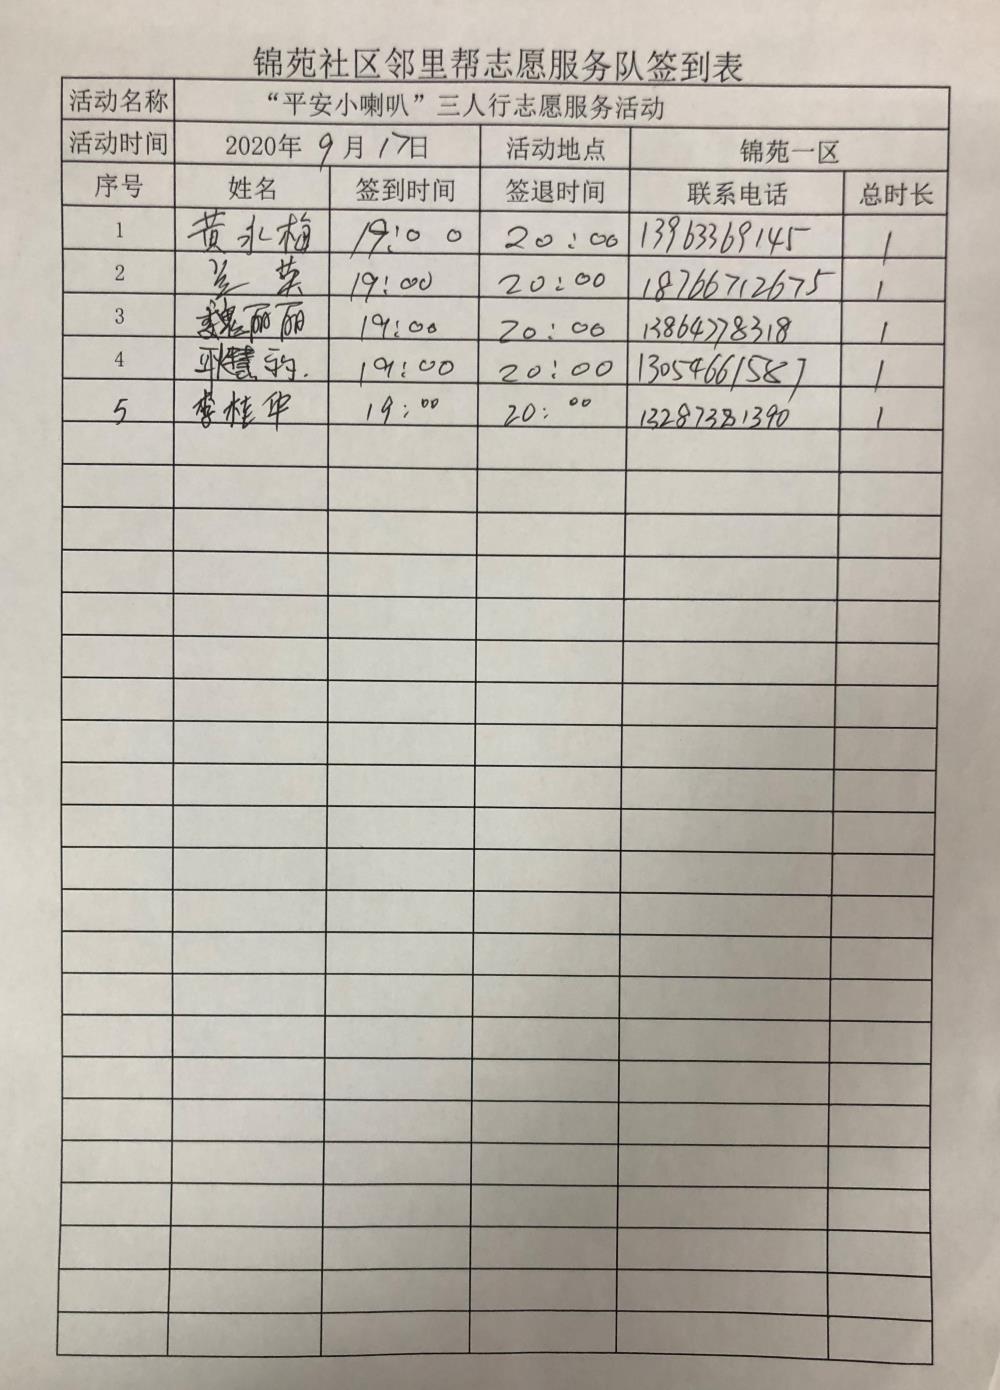 锦苑社区邻里帮志愿服务队签到表
活动名称 “平安小喇叭”三人行志愿服务活动
活动时间 2020年 9 月 17日 活动地点 锦苑一区
序号 姓名 签到时间 签退时间 联系电话 总时长
1 黄永梅 19:00 20:00 13963369145 1
2 兰英 19:00 20:00 18766712675 1
3 魏丽丽 19:00 20:00 13864778318 1
4 19:00 20:00 13054661587 1
5 李桂华 19:00 20:00 13287381390 1